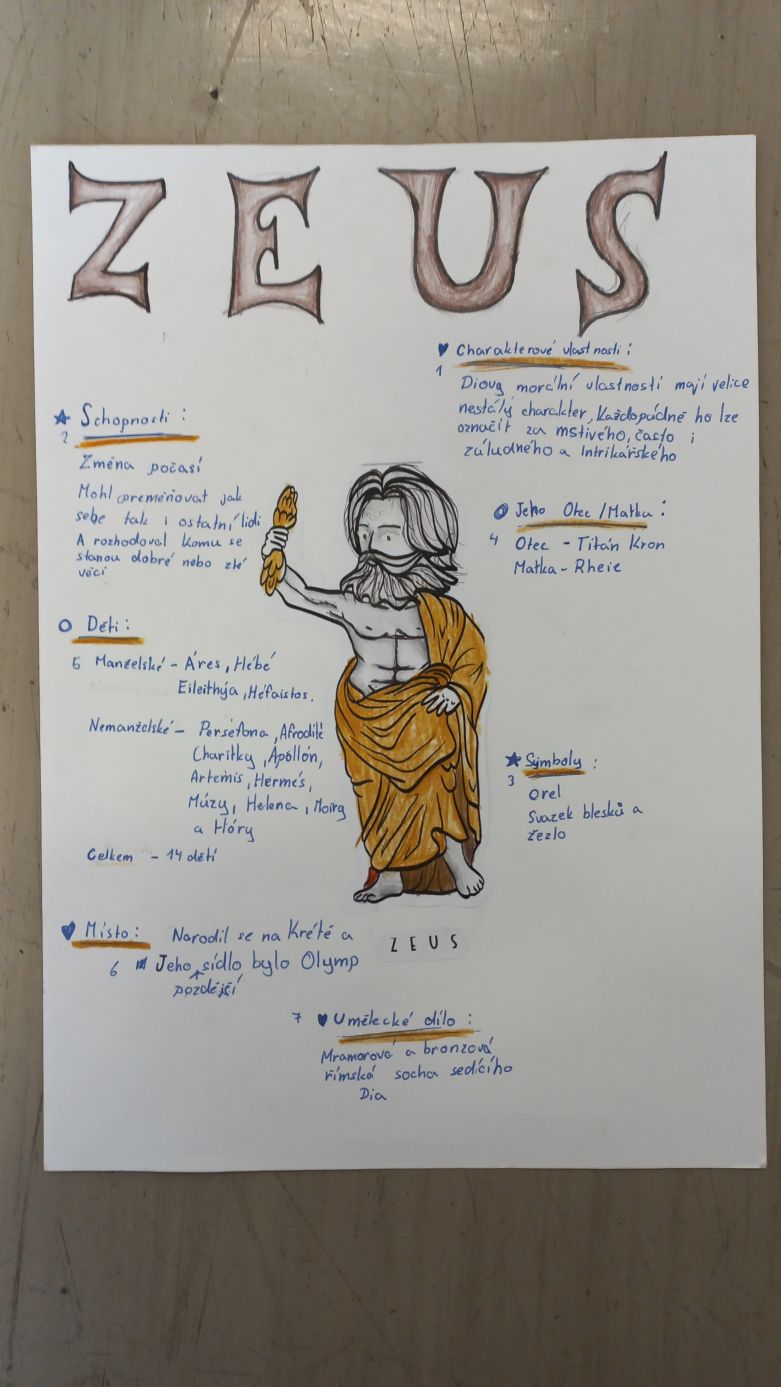 ZEUS
♥ Charakterové vlastnosti:
1
Diovy morální vlastnosti mají velice
nestálý charakter, Každopádně ho lze
označit za mstivého, často i
záludného a Intrikářského
★ Schopnosti:
2
Změna počasí
Mohl přeměňovat jak
sebe tak i ostatní lidi
A rozhodoval komu se
stanou dobré nebo zlé
věci
Jeho Otec/Matka:
4 Otec - Titán Kron
Matka - Rheie
Děti:
5 Manželské - Áres, Hébé
Eileithýa, Héfaistos.
Nemanželské - Perséfona, Afrodité
Charitky, Apollón,
Artemis, Hermés,
Múzy, Helena, Moiry
a Hóry
Celkem - 14 dětí
★ Symboly:
3
orel
Svazek blesků a
žezlo
♥ Místo: Narodil se na Krétě a
6 Jeho sídlo bylo Olymp
pozdější
ZEUS
7 ♥ Umělecké dílo:
Mramorová a bronzová
římská socha sedícího
Dia